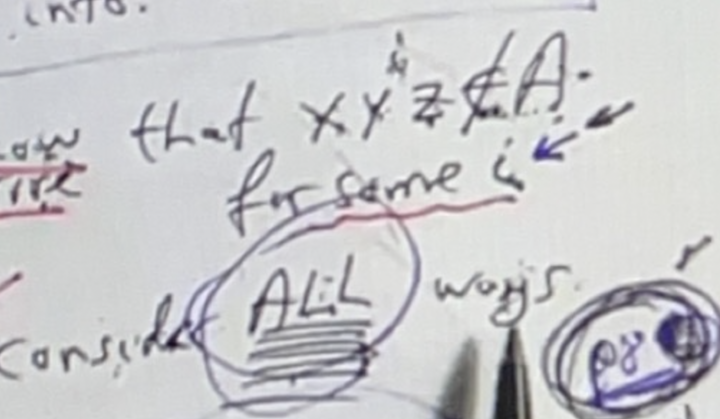 into.
that xy^i z ∉ A.
for some i
Consider ALL ways.